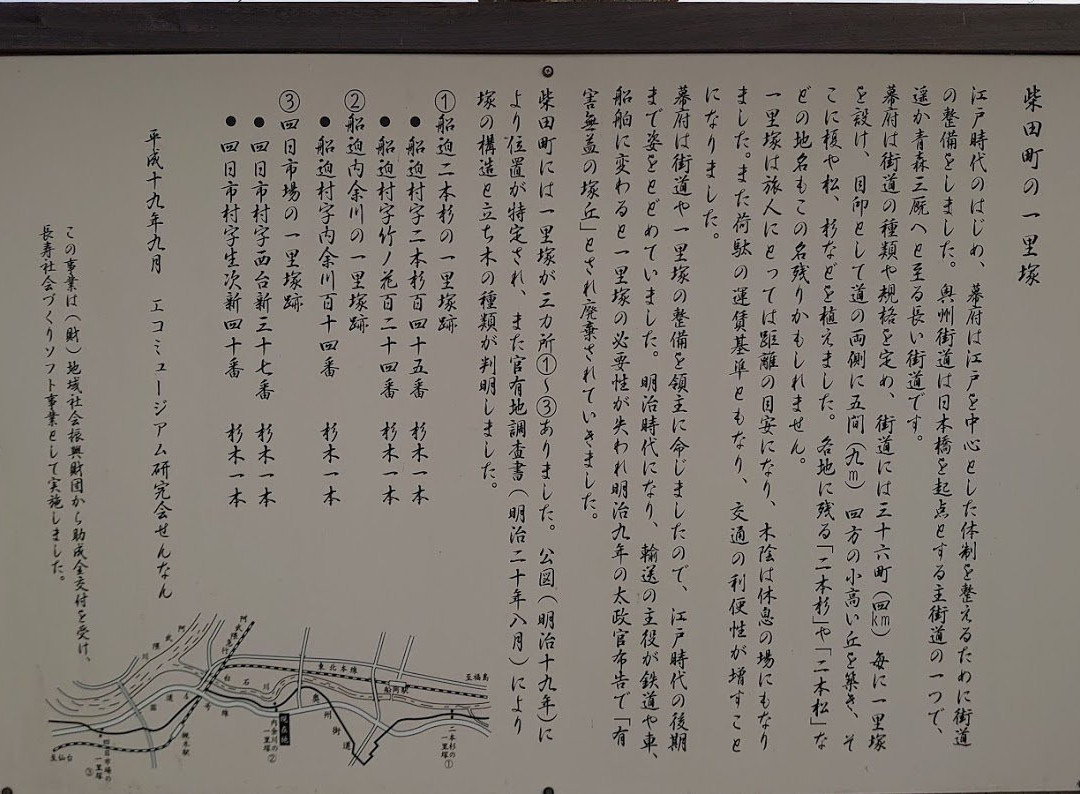 柴田町の一里塚
江戸時代のはじめ、幕府は江戸を中心とした体制を整えるために街道
の整備をしました。奥州街道は日本橋を起点とする主街道の一つで、
遥か青森三厩へと至る長い街道です。
幕府は街道の種類や規格を定め、街道には三十六町（四km）毎に一里塚
を設け、目印として道の両側に五間（九m）四方の小高い丘を築き、そ
こに榎や松、杉などを植えました。各地に残る「二本杉」や「二本松」な
どの地名もこの名残りかもしれません。
一里塚は旅人にとっては距離の目安になり、木陰は休息の場にもなり
ました。また荷駄の運賃基準ともなり、交通の利便性が増すこと
になりました。
幕府は街道や一里塚の整備を領主に命じましたので、江戸時代の後期
まで姿をとどめていました。明治時代になり、輸送の主役が鉄道や車、
船舶に変わると一里塚の必要性が失われ明治九年の太政官布告で「有
害無益の塚丘」とされ廃棄されていきました。
柴田町には一里塚が三カ所①～③ありました。公図（明治十九年）に
より位置が特定され、また官有地調査書（明治二十年八月）により
塚の構造と立ち木の種類が判明しました。
①船迫二本杉の一里塚跡
●船迫村字二本杉百四十五番 杉木一本
●船迫村字竹ノ花百二十四番 杉木一本
②船迫内余川の一里塚跡
●船迫村字内余川百十四番 杉木一本
③四日市場の一里塚跡
●四日市村字西台新三十七番 杉木一本
●四日市村字生次新四十番 杉木一本
平成十九年九月 エコミュージアム研究会せんなん
この事業は（財）地域社会振興財団から助成金交付を受け、
長寿社会づくりソフト事業として実施しました。
阿武隈川
阿武隈急行
東北本線
至福島
白石川
船岡駅
国道4号線
奥州街道
現在地
内余川の一里塚②
二本杉の一里塚①
槻木駅
至仙台
四日市場の一里塚③